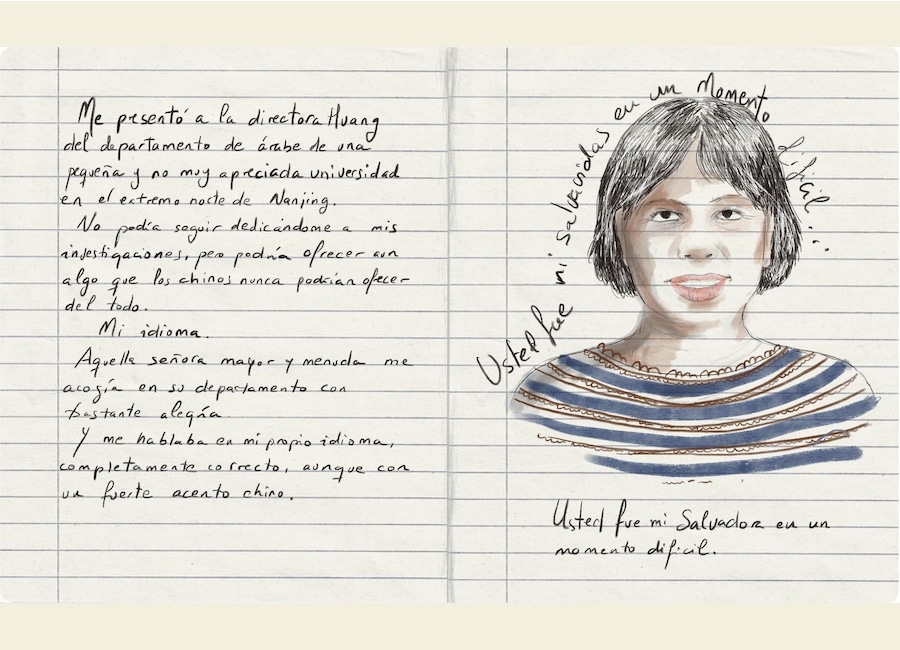 Me presentó a la directora Huang
del departamento de árabe de una
pequeña y no muy apreciada universidad
en el extremo norte de Nanjing.
No podía seguir dedicándome a mis
investigaciones, pero podría ofrecer aun
algo que los chinos nunca podrían ofecer
del todo.
Mi idioma.
Aquella señora mayor y menuda me
acogía en su departamento con
bastante alegría.
Y me hablaba en mi propio idioma,
completamente correcto, aunque con
un fuerte acento chino.
Usted fue mi salvavidas en un Momento difícil...
Usted fue mi Salvadora en un
momento difícil.